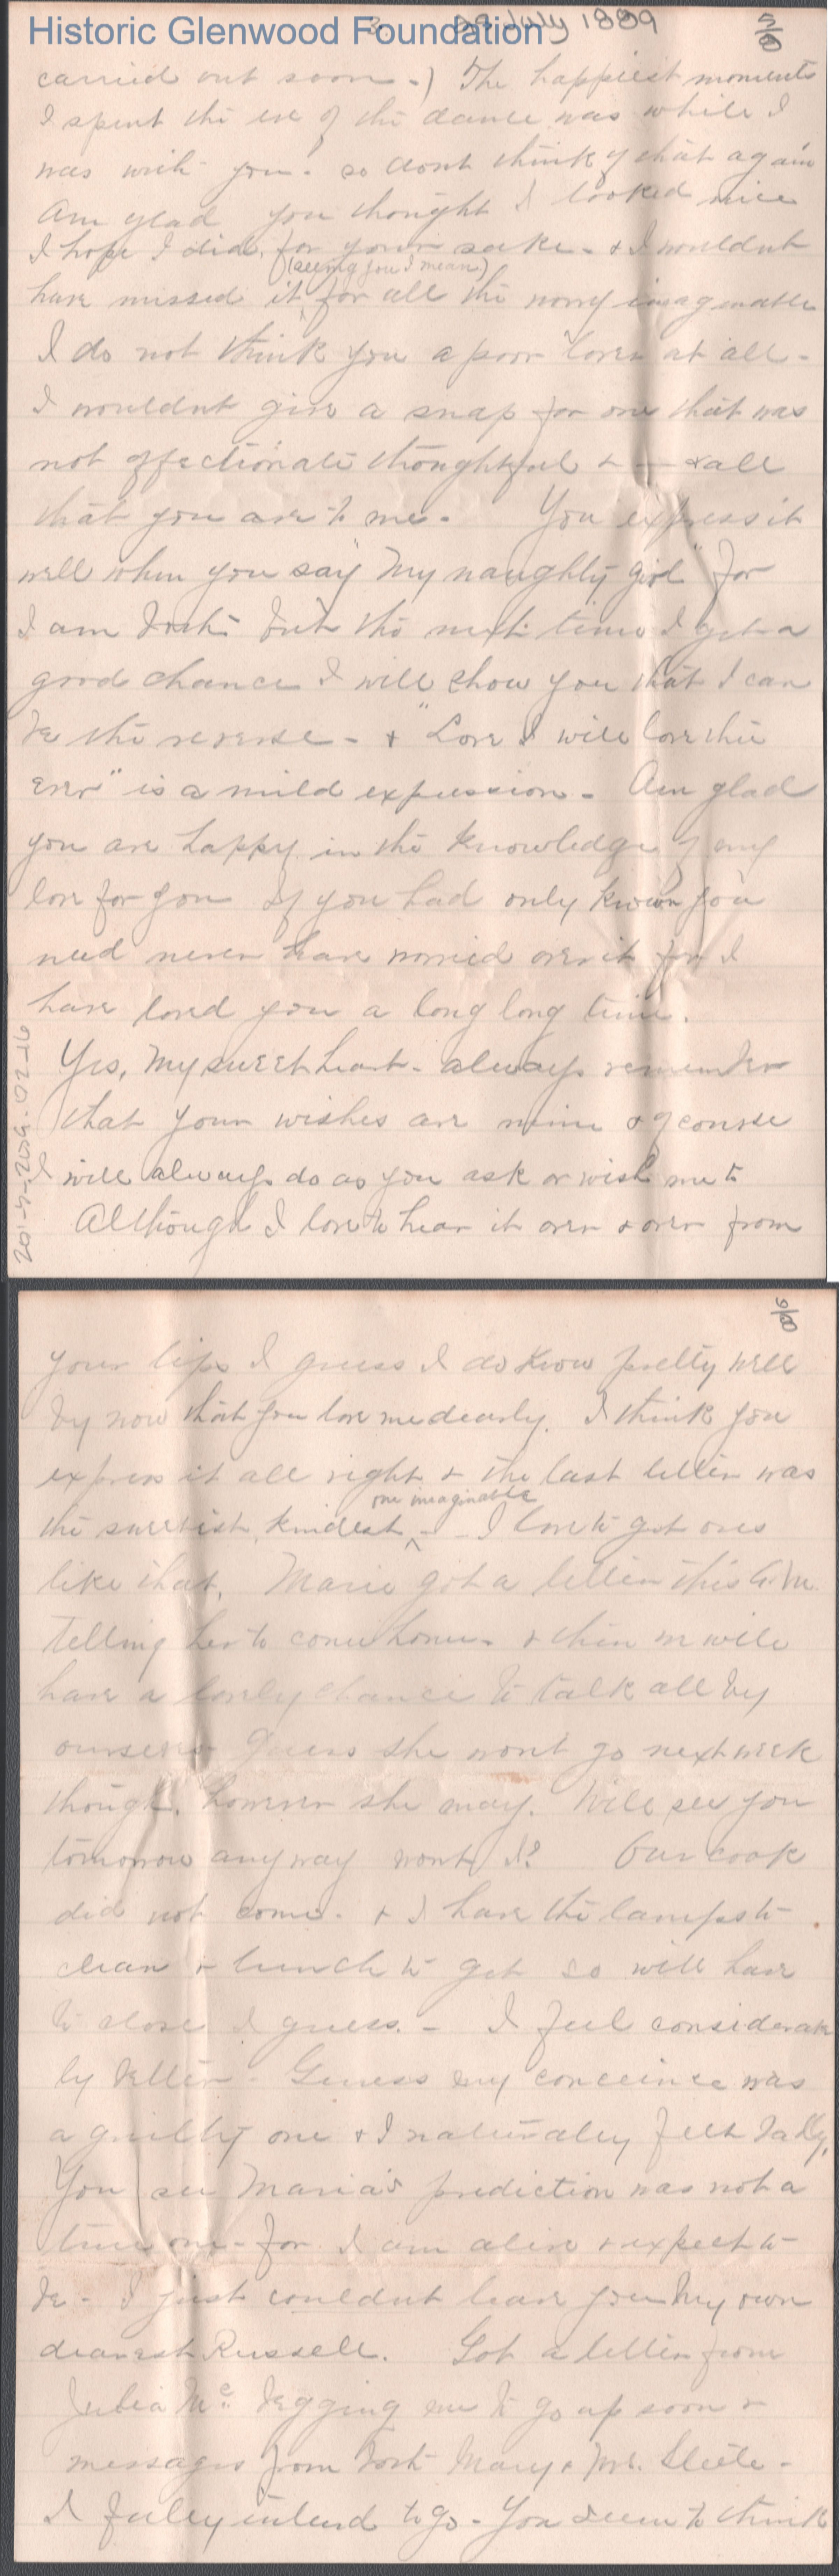 Historic Glenwood Foundation
3. July 1889
5/8
carried out soon -) The happiest moments
I spent the eve of the dance was while I
was with you. so dont think of that again
Am glad you thought I looked nice
I hope I did, for your sake - & I wouldnt
(seeing you I mean)
have missed it, for all the worry imaginable
I do not think you a poor "lover" at all -
I wouldnt give a snap for one that was
not affectionate thoughtful & — & all
that you are to me - You express it
well when you say "My naughty girl" for
I am both but the next time I get a
good chance I will show you that I can
be the reverse - & "Love I will love thee
Ever" is a mild expression - Am glad
you are happy in the knowledge of my
love for you If you had only known you
need never have worried over it for I
have loved you a long long time.
Yes, my sweetheart - always remember
that your wishes are mine & of course
I will always do as you ask or wish me to
Although I love to hear it over & over from
2014-2019-02-16
6/8
your lips I guess I do know pretty well
by now that you love me dearly. I think you
express it all right & the last letter was
one imaginable
the sweetest, kindest - I love to get ones
like that. Marie got a letter this A.M.
telling her to come home - & then we will
have a lovely chance to talk all by
ourselves Guess she wont go next week
though, however she may. Will see you
tomorrow anyway wont I? Our cook
did not come - & I have the lamps to
clean & lunch to get so will have
to close I guess. - I feel considerab
ly better - Guess my conceince was
a guilty one & I naturaley felt badly,
You see Maria's prediction was not a
true one - for I am alive & expect to
be - I just couldnt leave you My own
dearest Russell. Got a letter from
Julia Mc. begging me to go up soon &
messages from both Mary & Mr. Steele -
I fuley intend to go - You seem to think